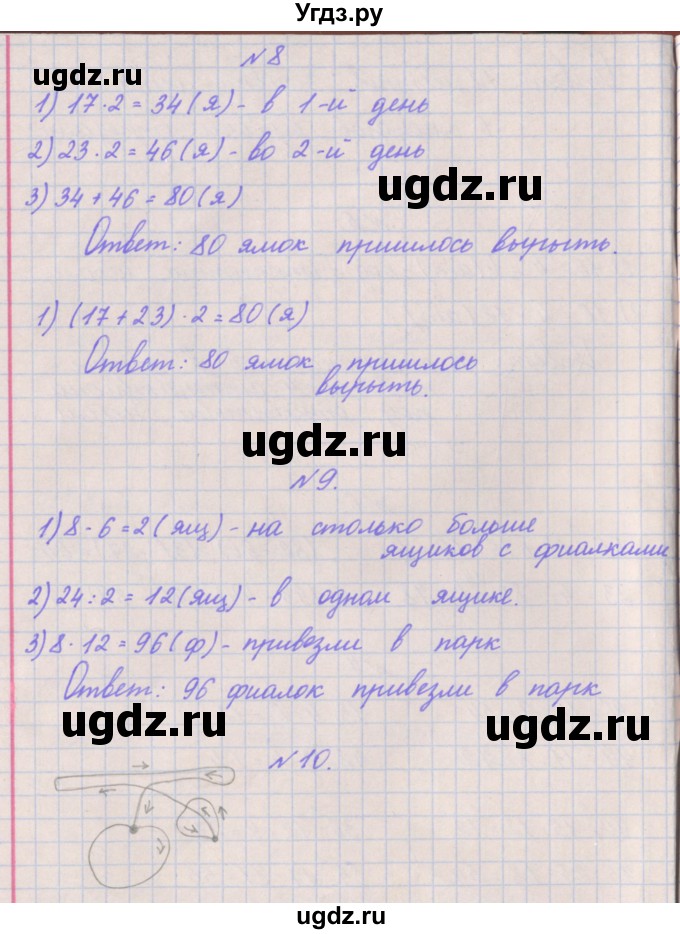 Угдз.ру
№8
ugdz.ru
1) 17·2=34(я)- в 1-й день
2) 23·2=46(я)- во 2-й день
ugdz.ru
3) 34+46=80(я)
Ответ: 80 ямок пришлось вырыть.
1) (17+23)·2=80(я)
Ответ: 80 ямок пришлось
вырыть.
ugdz.ru
№9.
1) 8-6=2(ящ)-на столько больше
ящиков с фиалками
2) 24:2=12(ящ)- в одном ящике.
3) 8·12=96(ф)- привезли в парк
Ответ: 96 фиалок привезли в парк
ugdz.ru
ugdz.ru
№10.
ugdz.ru